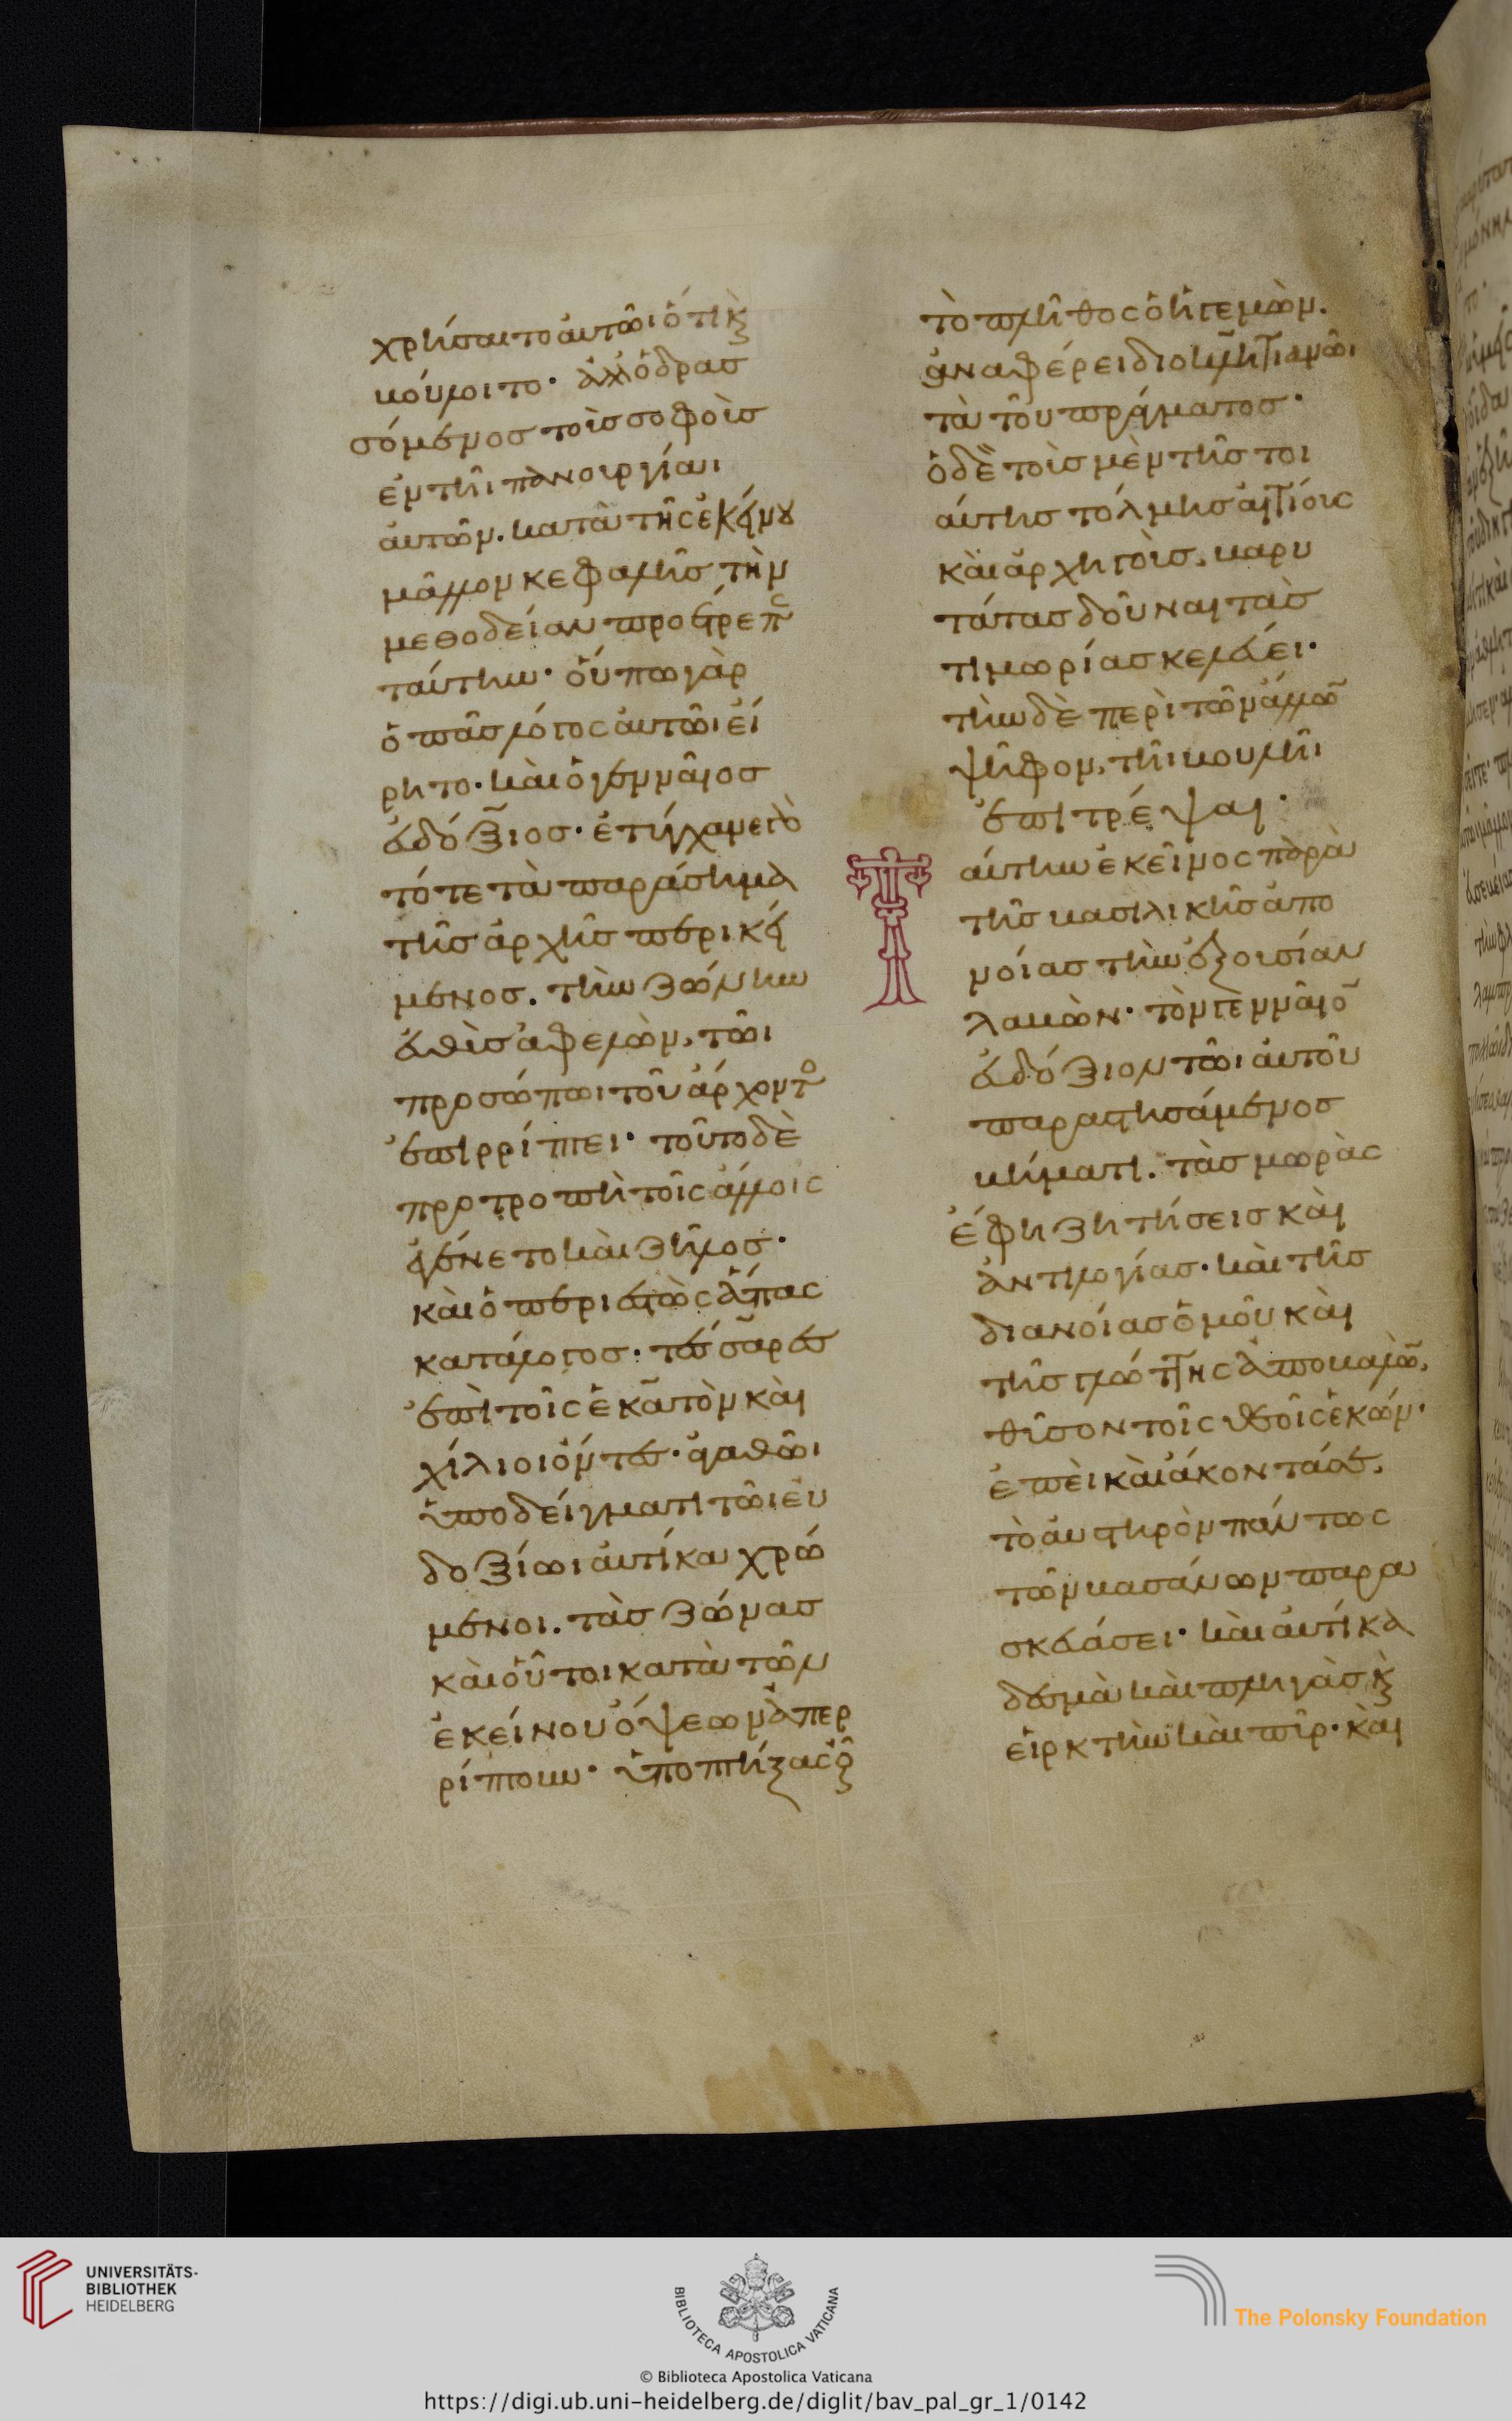 χρήσαιτο αὐτῶι ὅ τι κ(αὶ)
βούλοιτο· ἀλλ' ὁ δρασ
σόμενος τοὺς σοφοὺς
ἐν τῆι πανουργίαι
αὐτῶν. κατὰ τῆς ἐκείνου
μᾶλλον κεφαλῆς τὴν
μεθοδείαν προὔτρεπε
ταύτην· οὔπω γὰρ
ὁ πᾶς λόγος αὐτῶι εἴ
ρητο· καὶ ὁ γενναῖος
εὐδόξιος· ἐτύγχανε γὸ
τότε τὰ παράσημα
τῆς ἀρχῆς περικεί
μενος. τὴν ζώνην
εὐθὺς ἀφελὼν, τῶι
προσώπωι τοῦ ἄρχοντο
ἐπιρρίπτει· τοῦτο δὲ
προτροπὴ τοῖς ἄλλοις
ἐγένετο καὶ ζῆλος·
καὶ ὁ περιεστὼς ἅπας
κατάλογος· τέσσαρες
ἐπὶ τοῖς ἑκατὸν καὶ
χίλιοι ὄντες· ἀγαθῶι
ὑποδείγματι τῶι εὐ
δοξίωι αὐτίκα χρώ
μενοι. τὰς ζώνας
καὶ οὗτοι κατὰ τῶν
ἐκείνου ὄψεων ἀπερ
ρίπτουν· ὑποπτήξας οὖ
τὸ πλῆθος ὁ ἡγεμὼν.
ἀναφέρει διοκλητιανῶι
τὰ τοῦ πράγματος·
ὁ δὲ τοῖς μὲν τῆς τοι
αύτης τόλμης αἰτίοις
καὶ ἀρχηγοῖς, βαρυ
τάτας δοῦναι τὰς
τιμωρίας κελεύει·
τὴν δὲ περὶ τῶν ἄλλω
ψῆφον, τῆι βουλῆι
ἐπιτρέψαι·
Ταύτην ἐκεῖνος παρὰ
τῆς βασιλικῆς ἀπο
νοίας τὴν ἐξουσίαν
λαβὼν· τὸν γενναῖο
εὐδόξιον τῶι αὐτοῦ
παραστησάμενος
βήματι. τὰς μωρὰς
ἔφη ζητήσεις καὶ
ἀντιλογίας· καὶ τῆς
διανοίας ὁμοῦ καὶ
τῆς γλώττης ἀποβαλὼ,
θῦσον τοῖς θεοῖς ἑκών·
ἐπεὶ καὶ ἄκοντά σε,
τὸ αὐστηρὸν πάντως
τῶν βασάνων παρα
σκευάσει· καὶ αὐτίκα
δεσμὰ καὶ πληγὰς κ(αὶ)
εἱρκτὴν καὶ πῦρ· καὶ
UNIVERSITÄTS-
BIBLIOTHEK
HEIDELBERG
BIBLIOTECA APOSTOLICA VATICANA
The Polonsky Foundation
© Biblioteca Apostolica Vaticana
https://digi.ub.uni-heidelberg.de/diglit/bav_pal_gr_1/0142